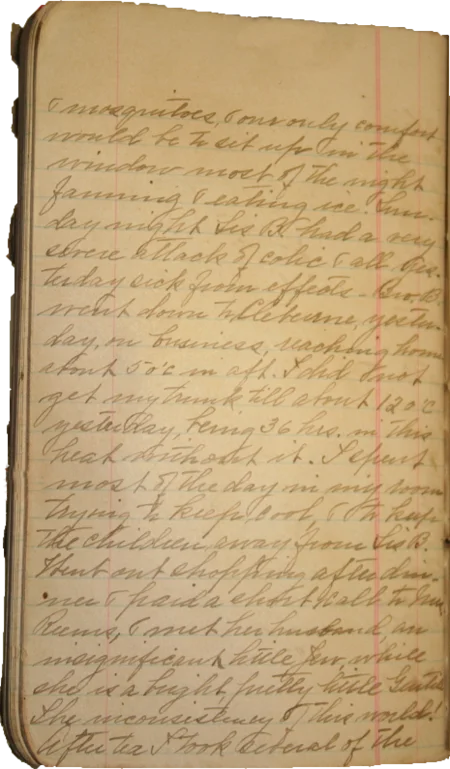 & mosquitoes, & our only comfort
would be to sit up in the
window most of the night
fanning & eating ice. Sun-
day night Sis B. had a very
severe attack of colic & all yes-
terday sick from effects - Bro. B.
went down to Cleburne, yester-
day, on business, reaching home
about 5 o'c in aft. I did not
get my trunk till about 12 o'c
yesterday, being 36 hrs. in this
heat without it. I spent
most of the day in my room
trying to keep cool, & to keep
the children away from Sis B.
Went out shopping after din-
ner & paid a short call to Mrs.
& met her husband, an
insignificant little Jew, while
she is a bright, pretty little Gentile
The inconsistency of this world!
After tea I took several of the